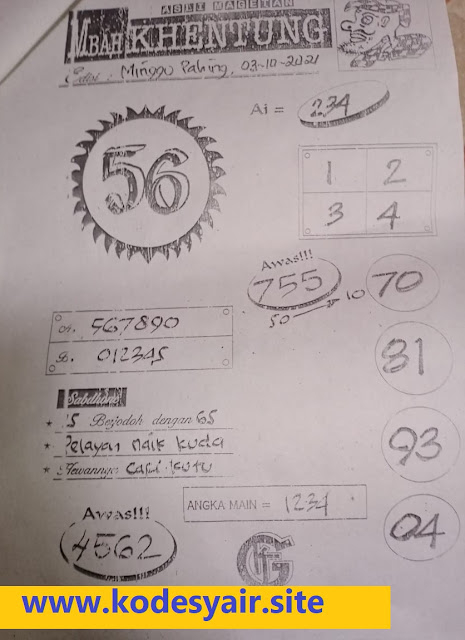 ASLI MAGETAN
MBAH KHENTUNG
Edisi : Minggu Pahing, 03-10-2021
Ai = 234
56
1 2
3 4
Awas!!!
755
50 → 10
70
A. 567890
B. 012345
81
Sabdhone
* 15 Berjodoh dengan 65
* Pelayan naik kuda
* Hewannya: Capi kutu
93
ANGKA MAIN = 1234
Awas!!!
4562
04
www.kodesyair.site